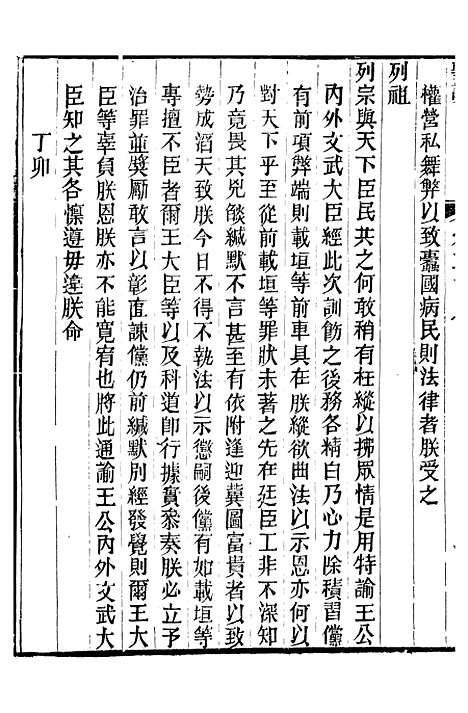 權營私舞弊以致蠹國病民則法律者朕受之
列祖
列宗與天下臣民共之何敢稍有枉縱以拂眾情是用特諭王公
內外文武大臣經此次訓飭之後務各精白乃心力除積習儻
有前項弊端則載垣等前車具在朕縱欲曲法以示恩亦何以
對天下乎至從前載垣等罪狀未著之先在廷臣工非不深知
乃竟畏其兇燄緘默不言甚至有依附逢迎冀圖富貴者以致
勢成滔天朕今日不得不執法以示懲嗣後儻有如載垣等
專擅不臣者爾王大臣等以及科道即行據實叅奏朕必立予
治罪並奬勵敢言以彰直諫儻仍前緘默別經發覺則爾王大
臣等辜負朕恩朕亦不能寬宥也將此通諭王公內外文武大
臣知之其各懍遵毋違朕命
丁卯